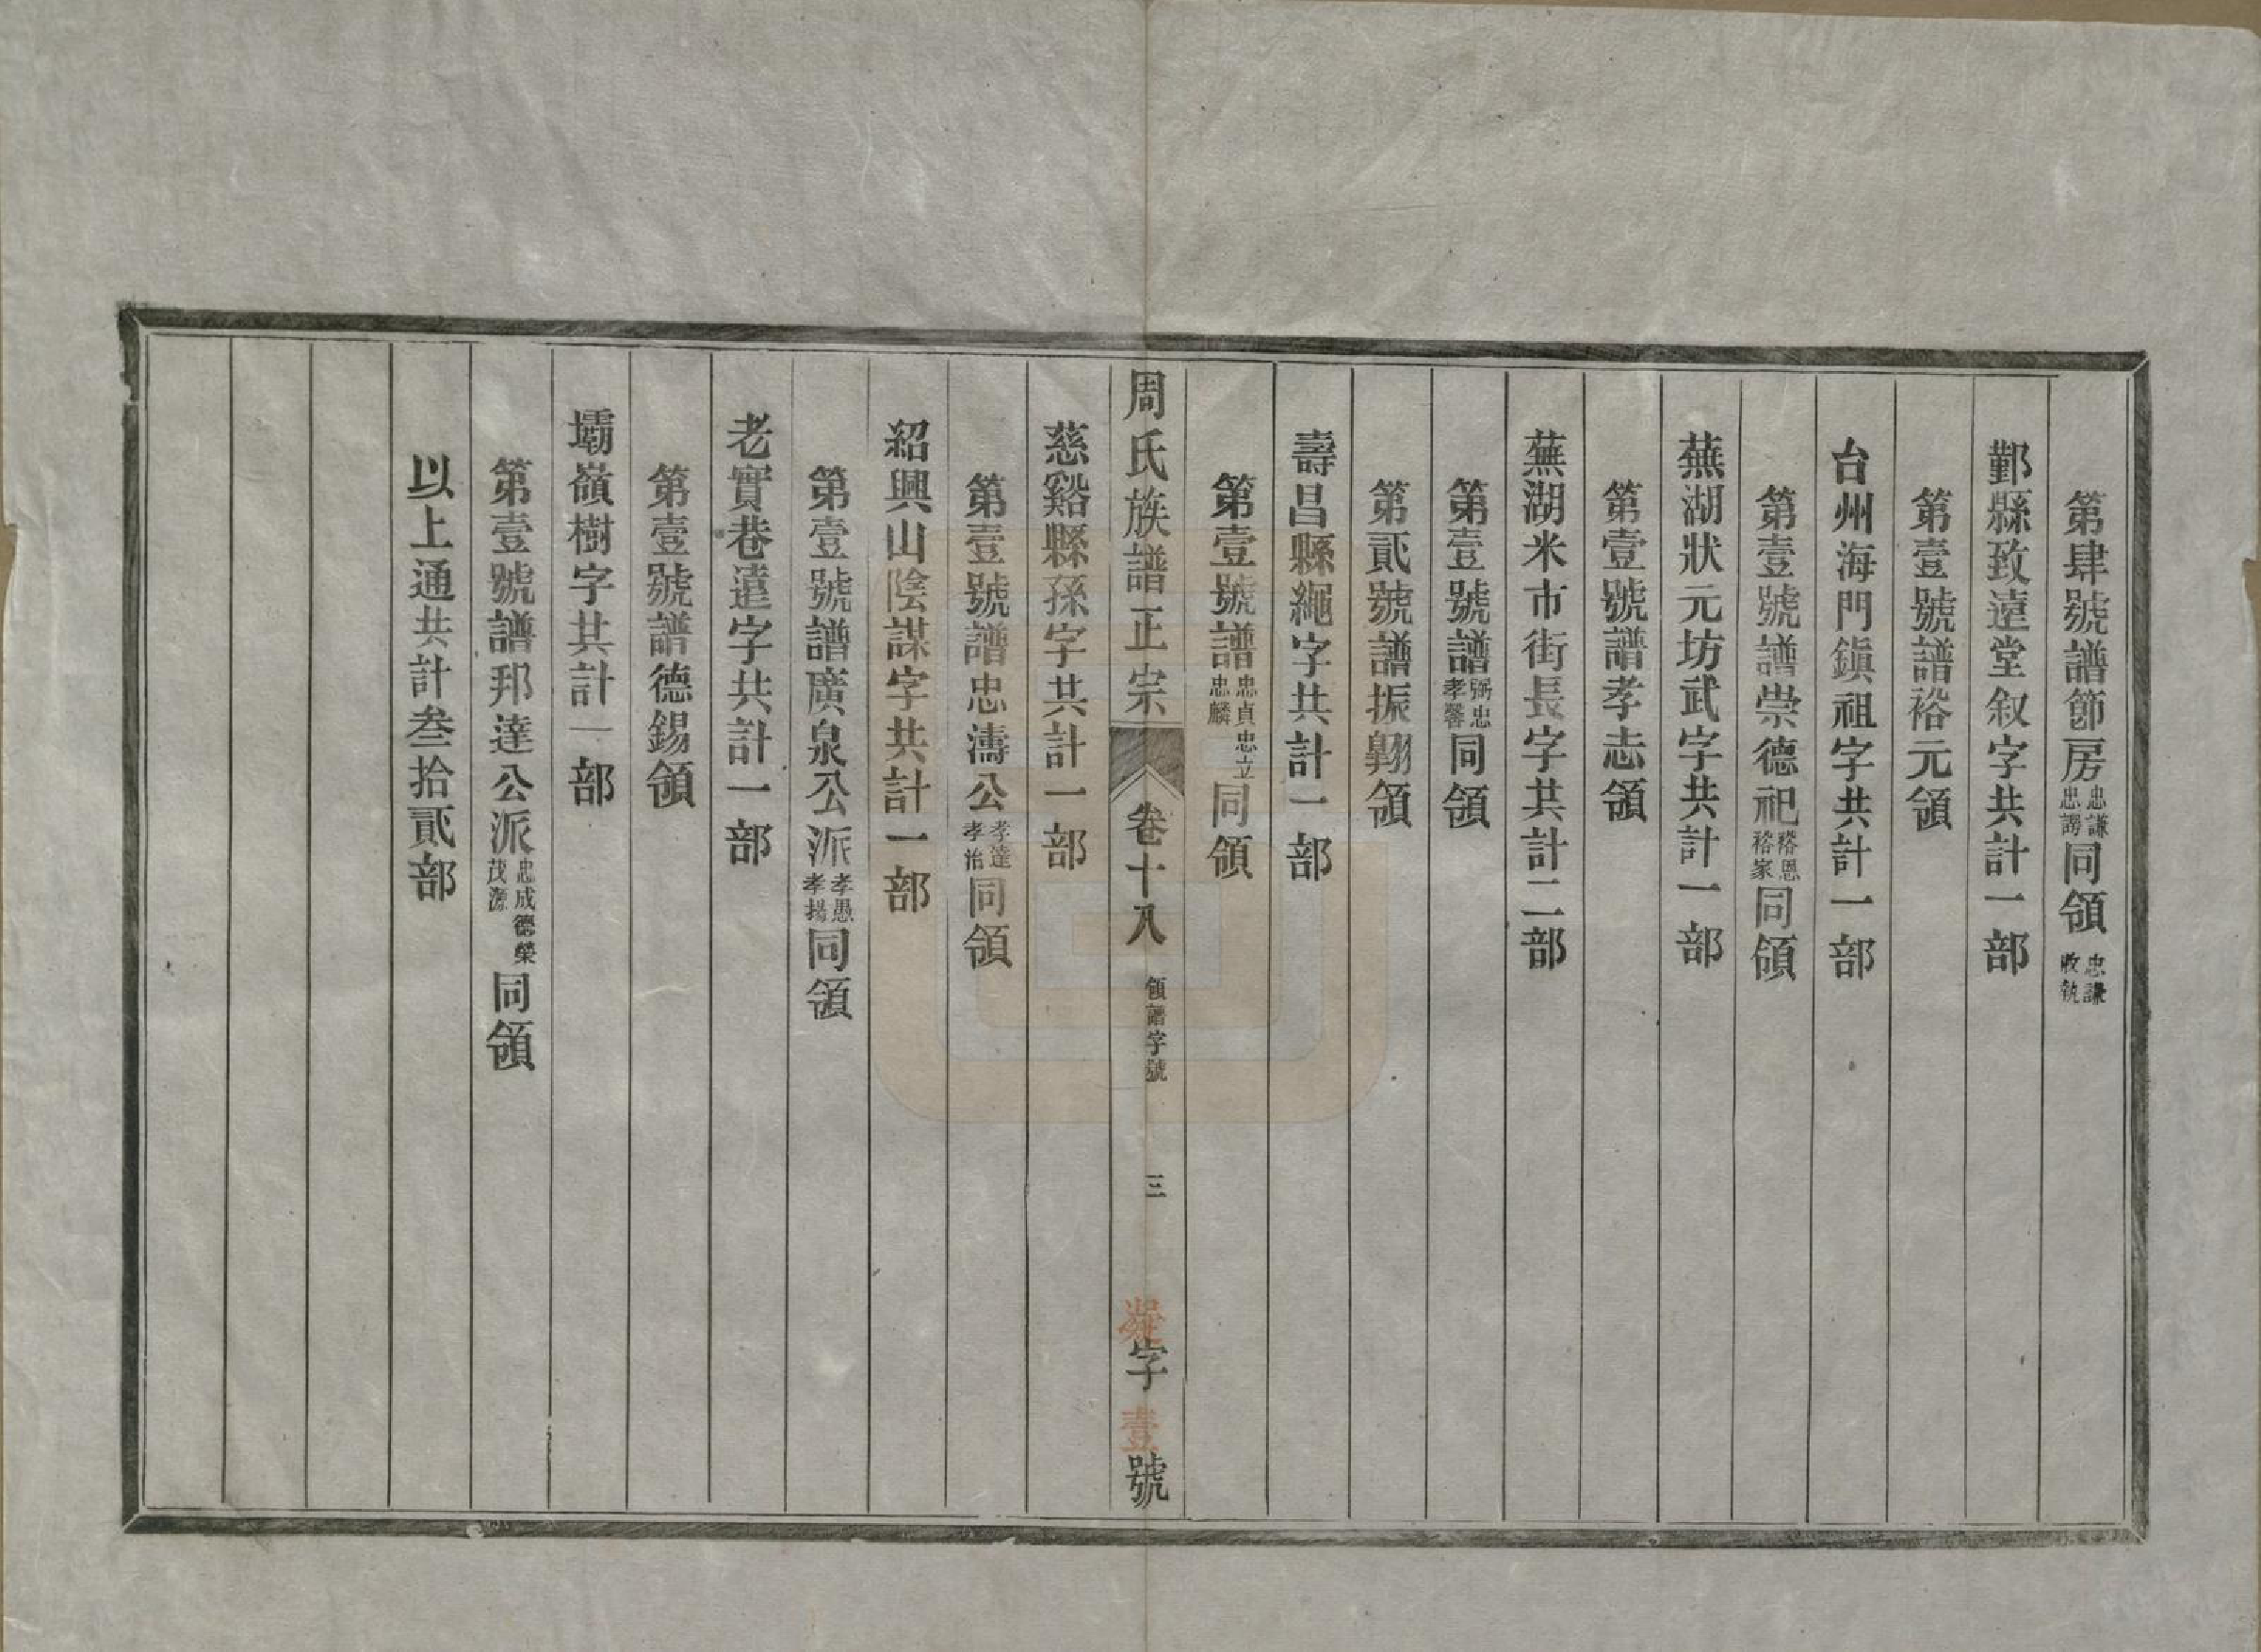 第肆號譜節房忠謙忠謁同領忠謙收執
鄞縣致遠堂叙字共計一部
第壹號譜裕元領
台州海門鎭祖字共計一部
第壹號譜崇德祀裕恩裕家同領
蕪湖狀元坊武字共計一部
第壹號譜孝志領
蕪湖米市街長字共計二部
第壹號譜弼忠孝馨同領
第貳號譜振翺領
壽昌縣繩字共計一部
第壹號譜忠貞忠立忠麟同領
周氏族譜正宗
卷十八
領譜字號
三
字壹號
慈谿縣孫字共計一部
第壹號譜忠濤公孝達孝治同領
紹興山陰謀字共計一部
第壹號譜廣泉公派孝愚孝揚同領
老實巷遠字共計一部
第壹號譜德錫領
壩嶺樹字共計一部
第壹號譜邦達公派忠成德榮茂源同領
以上通共計叁拾貳部